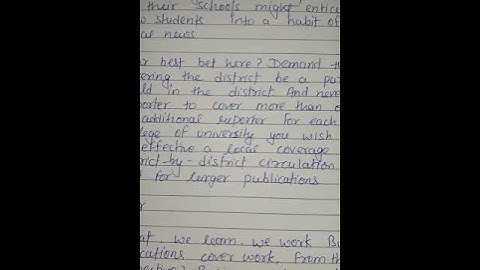 their schools might entic
students into a habit of
news.
best bet here? Demand t
ering the district be a pa
ld in the district. And neve
orter to cover more than o
additional reporter for each
lege of university you wish
effective a local coverage
rict-by-district circulation
for larger publications
at. we learn. we work Bu
ications cover work, From th